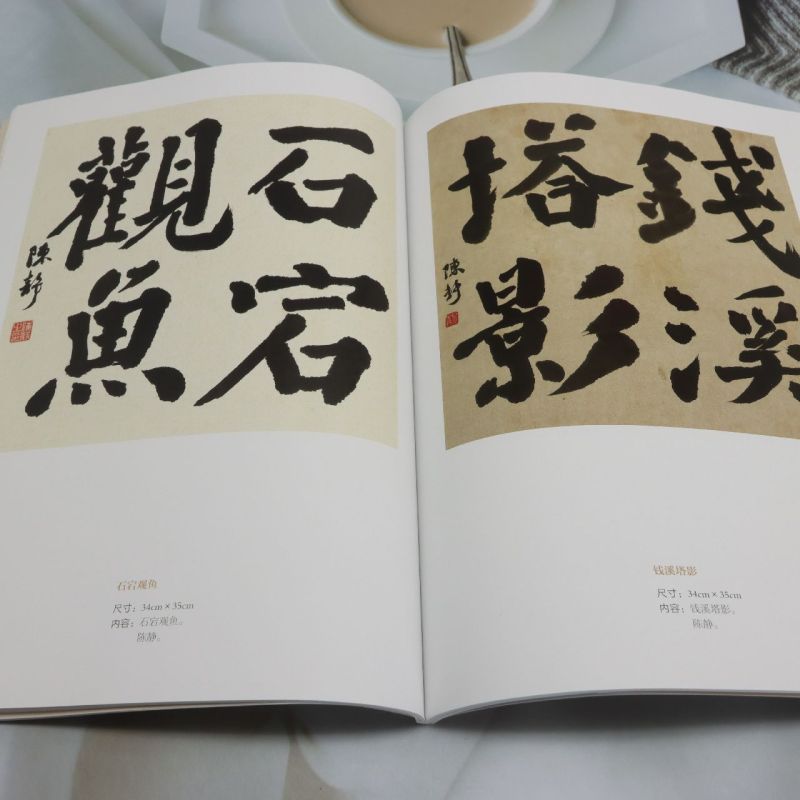 石宕
觀魚
陳靜
石宕观鱼
尺寸：34cm×35cm
内容：石宕观鱼。
陈静。
錢溪
塔影
陳靜
钱溪塔影
尺寸：34cm×35cm
内容：钱溪塔影。
陈静。